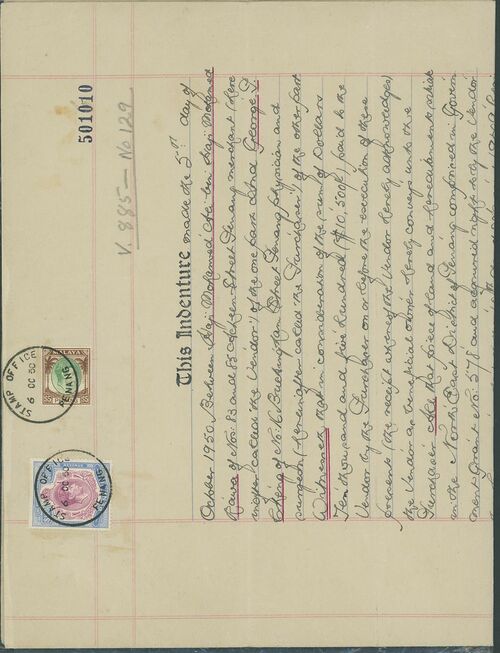 501010
V. 885 — No 129
STAMP OFFICE
6 OC 50
PENANG
MALAYA
$5
STAMP OFFICE
6 OC 50
PENANG
This Indenture made the 5th day of
October 1950 Between Haji Mohamed
of Nos: 83 and 85 Street Penang merchant (here
inafter called the Vendor) of the one part and George
of No. Buckingham Street Penang physician and
surgeon (hereinafter called the Purchaser) of the other part
Witnesseth that in consideration of the sum of Dollars
Ten thousand and five hundred ($10,500/-) paid to the
Vendor by the Purchaser on or before the execution of these
presents (the receipt whereof the Vendor hereby acknowledges)
the Vendor as beneficial owner hereby conveys unto the
Purchaser All that piece of land and hereditaments situate
in the North East District of Penang comprised in Govern
ment Grant No. 578 and acquired by the Vendor